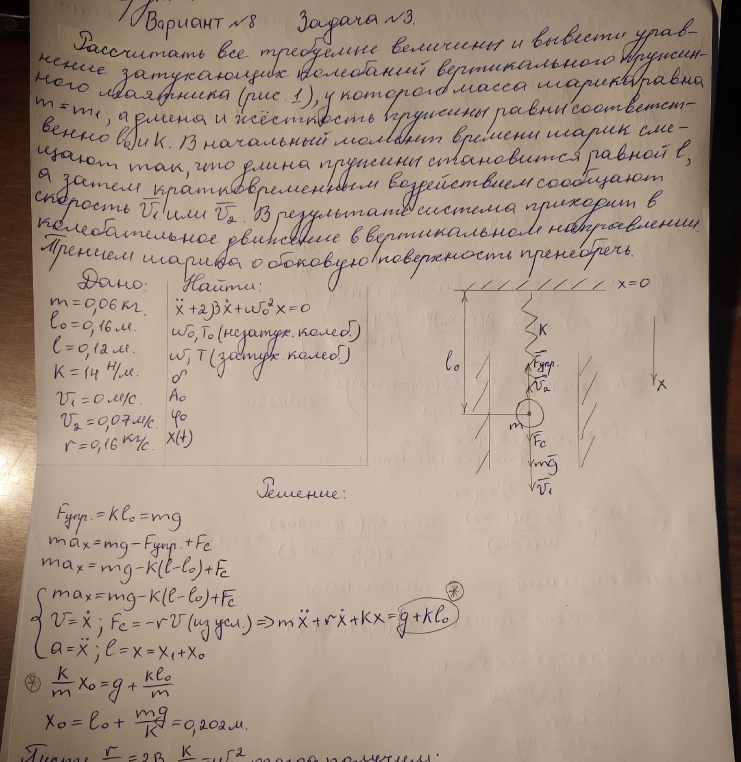 Вариант №8 Задача №3.
Рассчитать все требуемые величины и вывести урав-
нение затухающих колебаний вертикального пружин-
ного маятника (рис. 1), у которого масса шарика равна
m = m₁, а длина и жёсткость пружины равны соответст-
венно l₀ и K. В начальный момент времени шарик сме-
щают так, что длина пружины становится равной l,
а затем кратковременным воздействием сообщают
скорость V̄₁ или V̄₂. В результате система приходит в
колебательное движение в вертикальном направлении.
Трением шарика о боковую поверхность пренебречь.
Дано: Найти:
m = 0,06 кг. ẍ + 2βẋ + ω₀²x = 0
l₀ = 0,16 м. ω₀, T₀ (незатух. колеб.)
l = 0,12 м. ω, T (затух. колеб.)
K = 14 Н/м. δ
V₁ = 0 м/с. A₀
V₂ = 0,07 м/с. φ₀
r = 0,16 кг/с. x(t)
x=0
K
l₀
F̄упр.
V̄₂
x
m
F̄c
mḡ
V̄₁
Решение:
Fупр. = Kl₀ = mg
maₓ = mg - Fупр. + Fc
maₓ = mg - K(l - l₀) + Fc
maₓ = mg - K(l - l₀) + Fc
V = ẋ; Fc = -rV (из усл.) => mẍ + rẋ + Kx = g + kl₀ *
a = ẍ; l = x = x₁ + x₀
* K/m x₀ = g + kl₀/m
x₀ = l₀ + mg/K = 0,202 м.